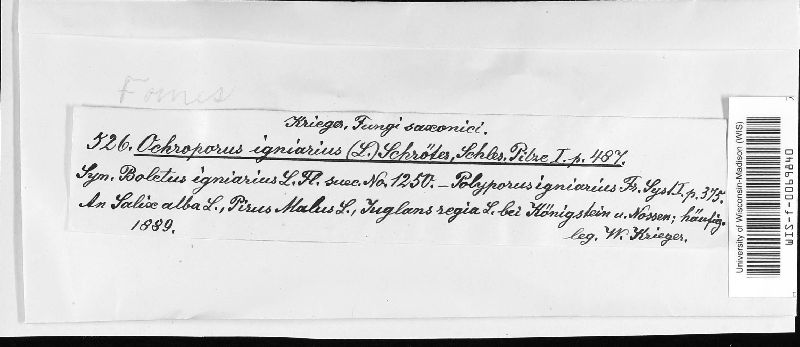 Fomes
Krieger, Fungi saxonici.
526. Ochroporus igniarius (L.) Schröter, Schles. Pilze I. p. 487.
Syn. Boletus igniarius L. Fl. suec. No. 1250. — Polyporus igniarius Fr. Syst. I. p. 375.
An Salix alba L., Pirus Malus L., Juglans regia L. bei Königstein u. Nossen; häufig.
1889.
leg. W. Krieger.
University of Wisconsin-Madison (WIS)
WIS-f-0069840